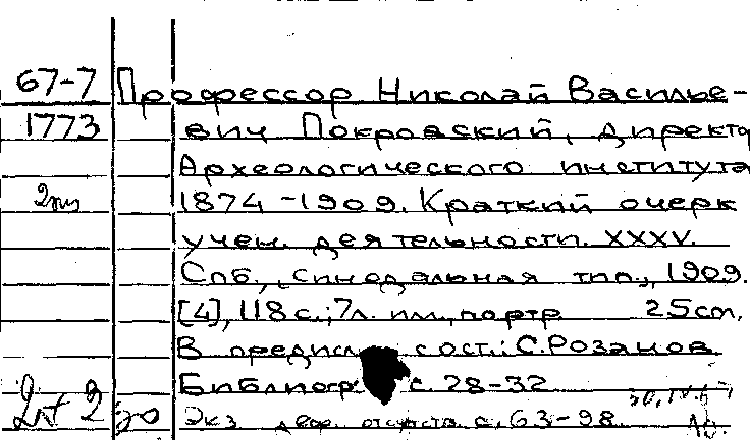 67-7 Профессор Николай Василье-
1773 вич Покровский, директо
Археологического института
2 экз 1874-1909. Краткий очерк
учен. деятельности. XXXV.
Спб., Синодальная тип., 1909.
[4], 118 с.; 7 л. илл., портр 25 cm.
В предисл. сост.: С. Розанов
Библиогр с. 28-32
Экз. деф. отсутств. с. 63-98.